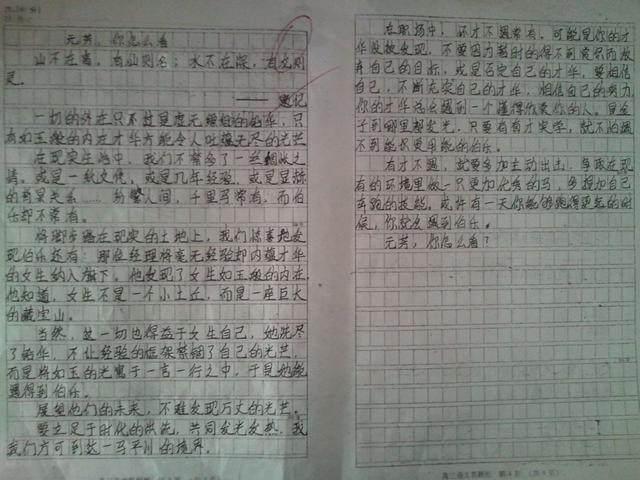 元芳,你怎么看
山不在高,有仙则名;水不在深,有龙则
灵。
——题记
一切的外在只不过是虚无缥缈的铅华,只
有如玉般的内在才华方能令人吐蕴无尽的光芒
在现实生活中,我们不常为了一纸翻收之
情。或是一纸文凭。或是几年经验。或是显赫
的背景关系……纷繁人间,千里马常有,而伯
乐却不常有。
将脚步踏在现实的土地上,我们惊喜地发
现伯乐还有:那位经理将毫无经验却内蕴才华
的女生纳入旗下。他发现了女生如玉般的内在,
他知道,女生不是一个小土丘,而是一座巨大
的藏宝山。
当然,这一切也得益于女生自己,她洗尽
了铅华,不让经验的框架禁锢了自己的光芒,
而是将如玉的光寓于一言一行之中,于是她能
遇得到伯乐。
展望他们的未来,不难发现万丈的光芒。
要立足于时代的洪流,共同发光发热,我
我们方可到达一马平川的境界。
在职场中,怀才不遇常有。可能是你的才
华没被发现,不要因为暂时的得不到赏识而放
弃自己的目标,或是否定自己的才华,要相信
自己,不断充实自己的才华,相信自己的努力
你的才华总会遇到一个懂得欣赏你的人。是金
子到哪里都发光,只要有才实学,就不怕遇
不到能识史用能的伯乐。
有才不遇,就要多加主动出击,争取在现
有的环境里做一只更加优秀的马,多增加自己
奔跑的技能。或许有一天你能够跑得更远的时
候,你就会遇到伯乐。
元芳,你怎么看?